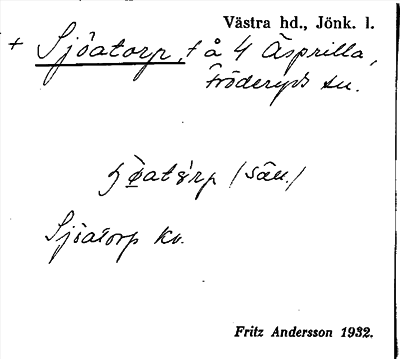 Västra hd., Jönk. l.
+ Sjöatorp, t å 4 Äsprilla,
Fröderyds sn.
(său.)
Sjöatorp kv.
Fritz Andersson 1932.